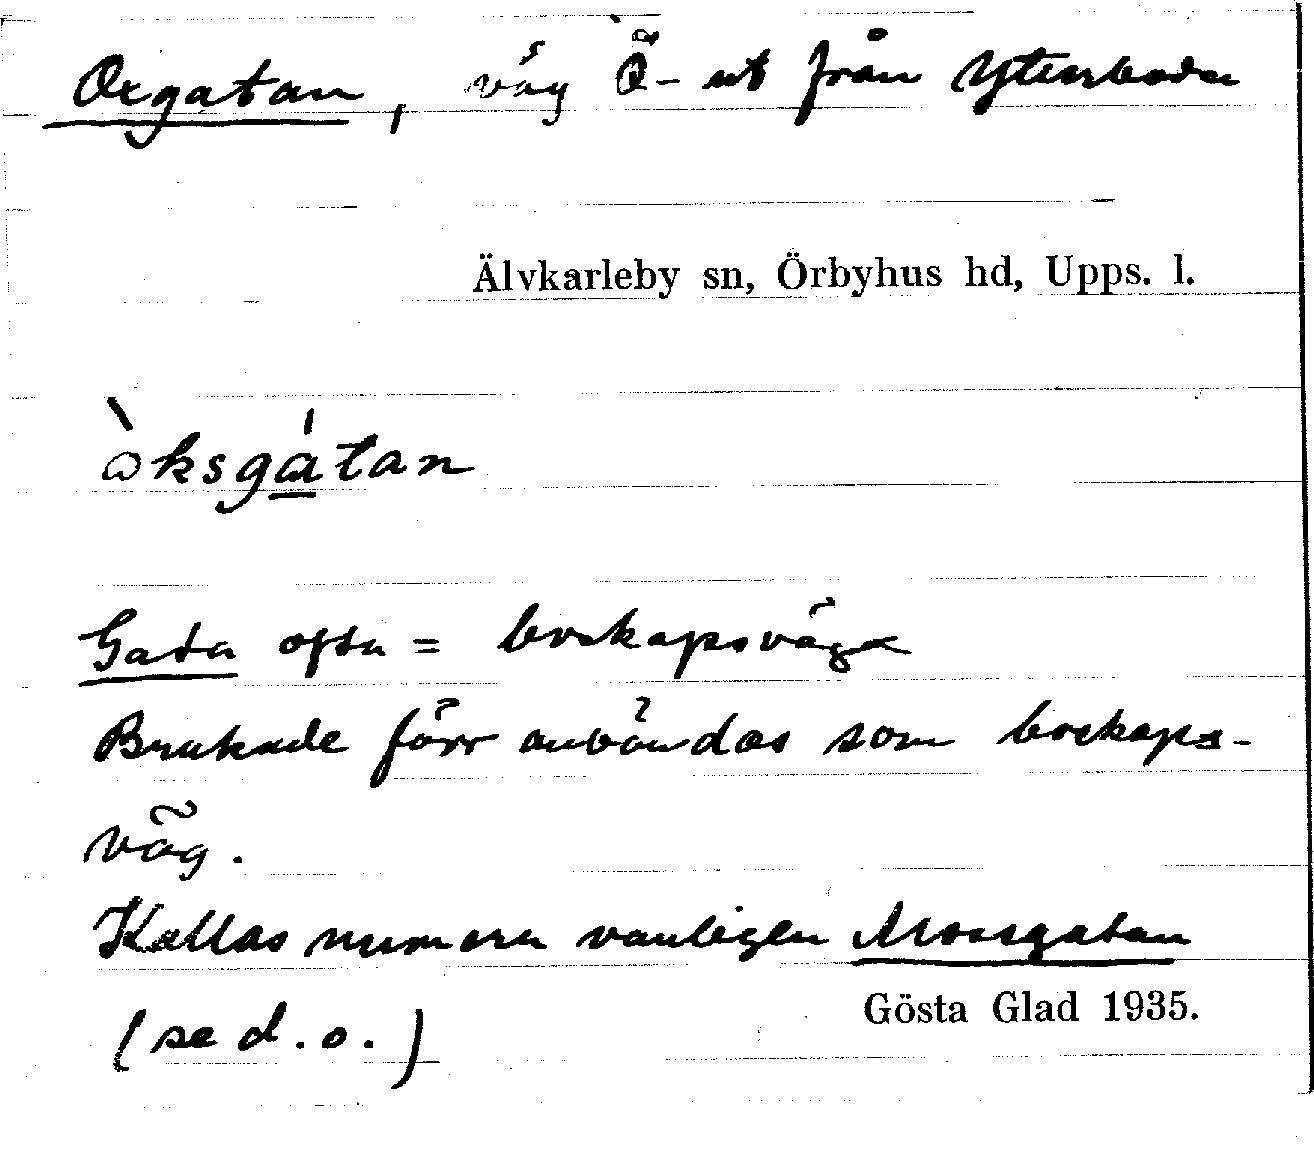 Oxgatan, väg Ö-ut från Ytterboda
Älvkarleby sn, Örbyhus hd, Upps. l.
ὼksgátan
Gata ofta = boskapsväg
Brukade förr användas som boskaps-
väg.
Kallas numera vanligen Mossgatan
(se d. o.)
Gösta Glad 1935.